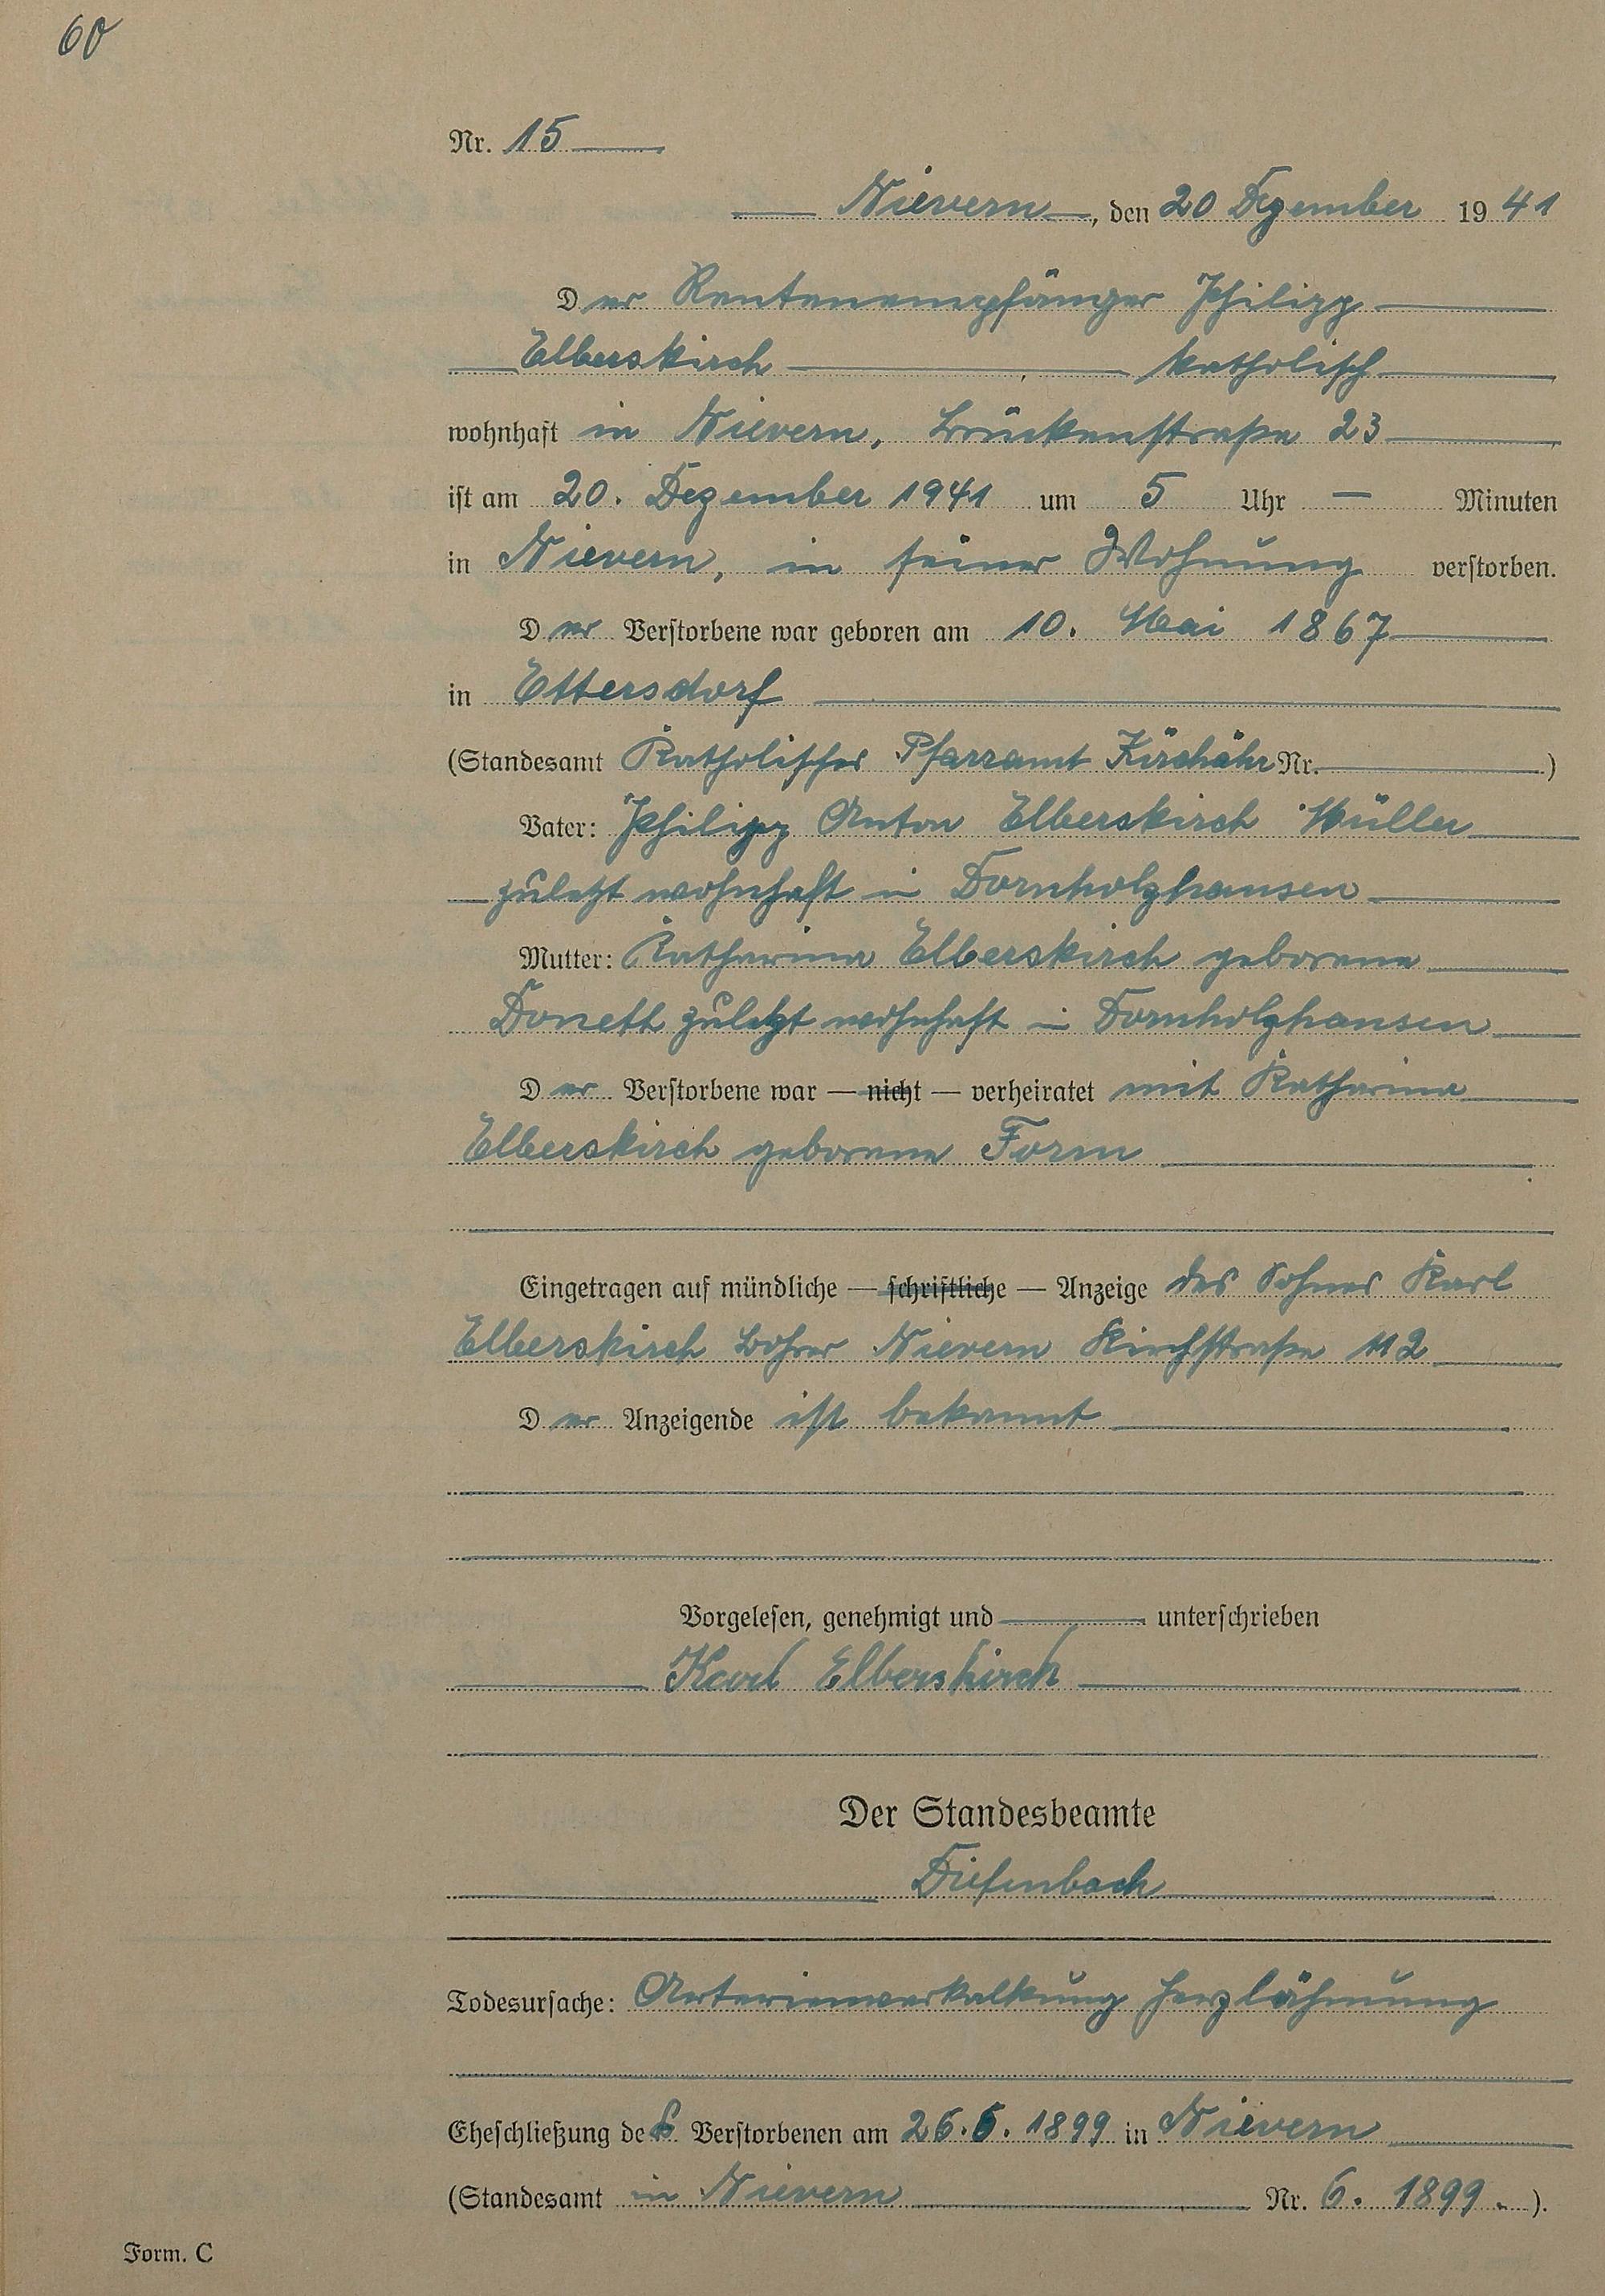 60
Nr. 15
Nievern, den 20 Dezember 1941
Der Rentenempfänger Philipp
Elberskirch, katholisch
wohnhaft in Nievern, Brückenstraße 23
ist am 20. Dezember 1941 um 5 Uhr — Minuten
in Nievern, in seiner Wohnung verstorben.
Der Verstorbene war geboren am 10. Mai 1867
in Ettersdorf
(Standesamt Katholisches Pfarramt Kirchähr Nr. )
Vater: Philipp Anton Elberskirch Müller
zuletzt wohnhaft in Dornholzhausen
Mutter: Katharina Elberskirch geborene
Donett zuletzt wohnhaft in Dornholzhausen
Der Verstorbene war — nicht — verheiratet mit Katharina
Elberskirch geborene Form
Eingetragen auf mündliche — schriftliche — Anzeige des Sohnes Karl
Elberskirch Bohrer Nievern Kirchstraße 112
Der Anzeigende ist bekannt
Vorgelesen, genehmigt und unterschrieben
Karl Elberskirch
Der Standesbeamte
Diefenbach
Todesursache: Arterienverkalkung Herzlähmung
Eheschließung des Verstorbenen am 26.5.1899 in Nievern
(Standesamt in Nievern Nr. 6. 1899.).
Form. C